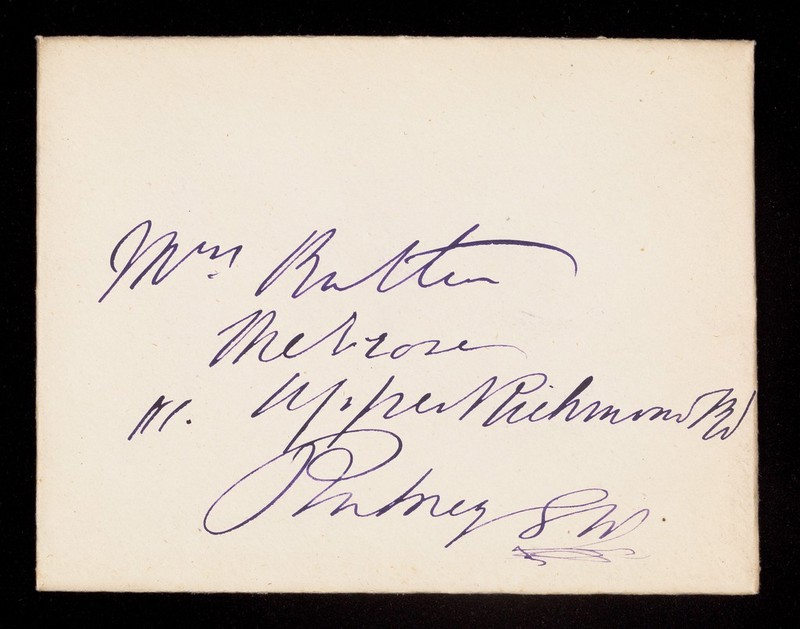 Mrs Batten
Melrose
Upper Richmond Rd
Putney S.W.